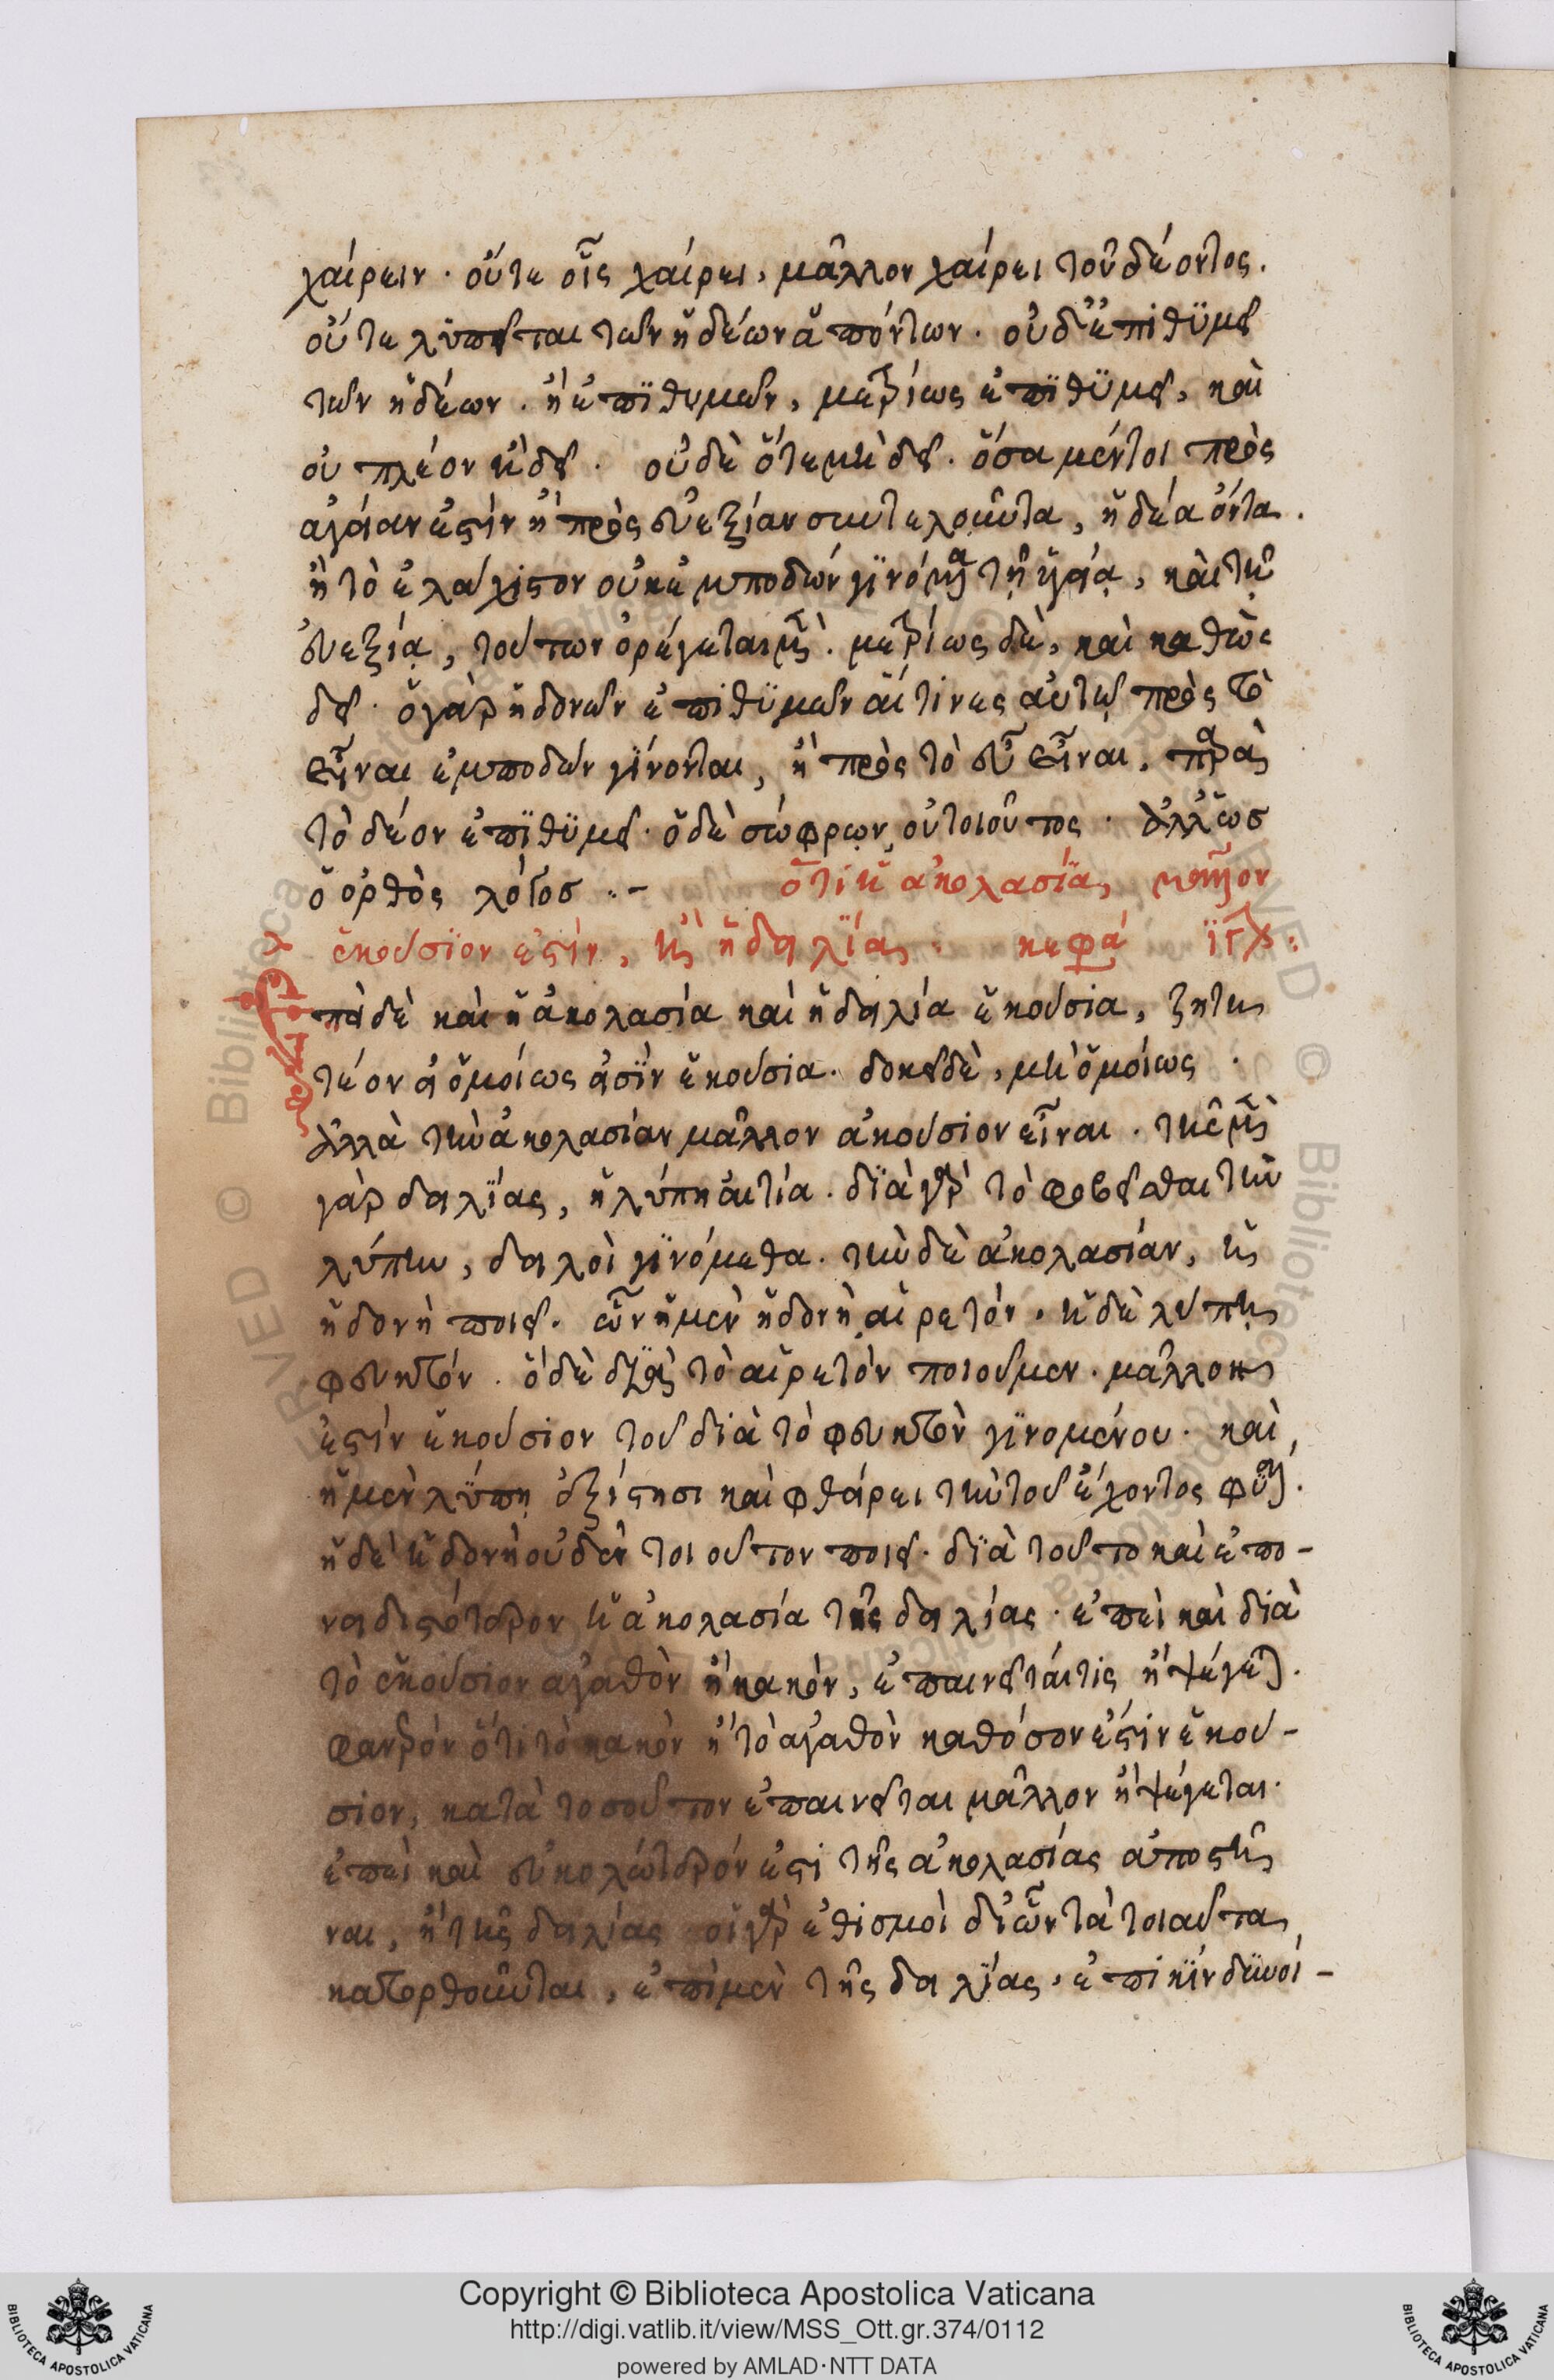 χαίρειν · οὔτε οἷς χαίρει, μᾶλλον χαίρει τοῦ δέοντος.
οὔτε λυπεῖται τῶν ἡδέων ἀπόντων · οὐδ' ἐπιθυμεῖ
τῶν ἡδέων · ἢ ἐπιθυμῶν, μετρίως ἐπιθυμεῖ, καὶ
οὐ πλέον ἢ δεῖ · οὐδὲ ὅτε μὴ δεῖ · ὅσα μέντοι πρὸς
ὑγείαν ἐστὶν ἢ πρὸς εὐεξίαν συντελοῦντα, ἡδέα ὄντα.
ἢ τὸ ἐλάχιστον οὐκ ἐμποδὼν γινόμενα τῇ ὑγεία, καὶ τῇ
εὐεξία, τούτων ὀρέγεται μὲν · μετρίως δὲ, καὶ καθὼς
δεῖ · ὁ γὰρ ἡδονῶν ἐπιθυμῶν αἵτινες αὐτῷ πρὸς τὸ
εἶναι ἐμποδὼν γίνονται, ἢ πρὸς τὸ εὖ εἶναι, παρὰ
τὸ δέον ἐπιθυμεῖ · ὁ δὲ σώφρων οὐ τοιοῦτος · ἀλλ' ὡς
ὁ ὀρθὸς λόγος :-   ὅτι ἡ ἀκολασία, μᾶλλον
ἑκούσιον ἐστὶν, ἢ ἡ δειλία · κεφά ιγλ:
πεὶ δὲ καὶ ἡ ἀκολασία καὶ ἡ δειλία ἑκούσια, ζητη
τέον εἰ ὁμοίως εἰσὶν ἑκούσια · δοκεῖ δὲ, μὴ ὁμοίως ·
ἀλλὰ τὴν ἀκολασίαν μᾶλλον ἀκούσιον εἶναι · τῆς μὲν
γὰρ δειλίας, ἡ λύπη αἰτία · διὰ γὰρ τὸ φοβεῖσθαι τὴν
λύπην, δειλοὶ γινόμεθα · τὴν δὲ ἀκολασίαν, ἡ
ἡδονὴ ποιεῖ · ὧν ἡ μὲν ἡδονὴ αἱρετόν · ἡ δὲ λύπη
φευκτόν · ὃ δὲ διὰ τὸ αἱρετὸν ποιοῦμεν · μᾶλλον
ἐστὶν ἑκούσιον τοῦ διὰ τὸ φευκτὸν γινομένου · καὶ
ἡ μὲν λύπη ἐξίστησι καὶ φθείρει τὴν τοῦ ἔχοντος φύσιν.
ἡ δὲ ἡδονὴ οὐδὲν τοιοῦτον ποιεῖ · διὰ τοῦτο καὶ ἐπο-
νειδιστότερον ἡ ἀκολασία τῆς δειλίας · ἐπεὶ καὶ διὰ
τὸ ἑκούσιον ἀγαθὸν ἢ κακὸν, ἐπαινεῖταί τις ἢ ψέγεται.
φανερὸν ὅτι τὸ κακὸν ἢ τὸ ἀγαθὸν καθόσον ἐστὶν ἑκού-
σιον, κατὰ τοσοῦτον ἐπαινεῖται μᾶλλον ἢ ψέγεται·
ἐπεὶ καὶ εὐκολώτερόν ἐστι τῆς ἀκολασίας ἀποστῆ
ναι, ἢ τῆς δειλίας οἱ γὰρ ἐθισμοὶ δι' ὧν τὰ τοιαῦτα
κατορθοῦνται, ἐπὶ μὲν τῆς δειλίας · ἐπικίνδυνοι -
Copyright © Biblioteca Apostolica Vaticana
http://digi.vatlib.it/view/MSS_Ott.gr.374/0112
powered by AMLAD·NTT DATA
BIBLIOTECA APOSTOLICA VATICANA
BIBLIOTECA APOSTOLICA VATICANA